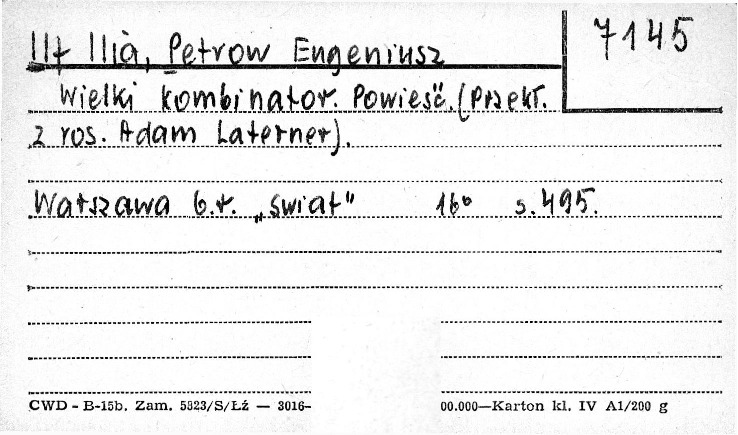 Ilf Ilia, Petrow Eugeniusz
7145
Wielki kombinator. Powieść. (Przekł.
z ros. Adam Laterner).
Warszawa b.r. „Świat" 16° s. 495.
CWD - B-15b. Zam. 5823/S/Łź — 3016— 00.000—Karton kl. IV A1/200 g